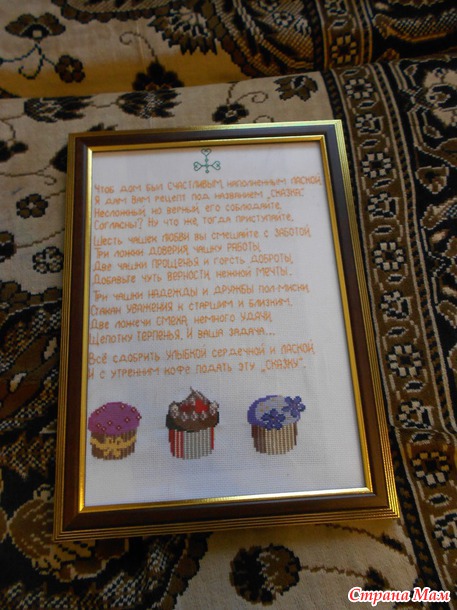 Чтоб дом был счастливым, наполненным лаской,
Я дам вам рецепт под названием „Сказка"
Несложный, но верный, его соблюдайте.
Согласны? Ну что же, тогда приступайте.
Шесть чашек любви вы смешайте с заботой,
Три ложки доверия, чашку работы,
Две чашки прощенья и горсть доброты,
Добавьте чуть верности, нежной мечты.
Три чашки надежды и дружбы пол-миски.
Стакан уважения к старшим и близким.
Две ложечки смеха, немного удачи,
Щепотку терпенья. И ваша задача...
Всё сдобрить улыбкой сердечной и лаской,
И с утренним кофе подать эту „сказку".
Страна Мам